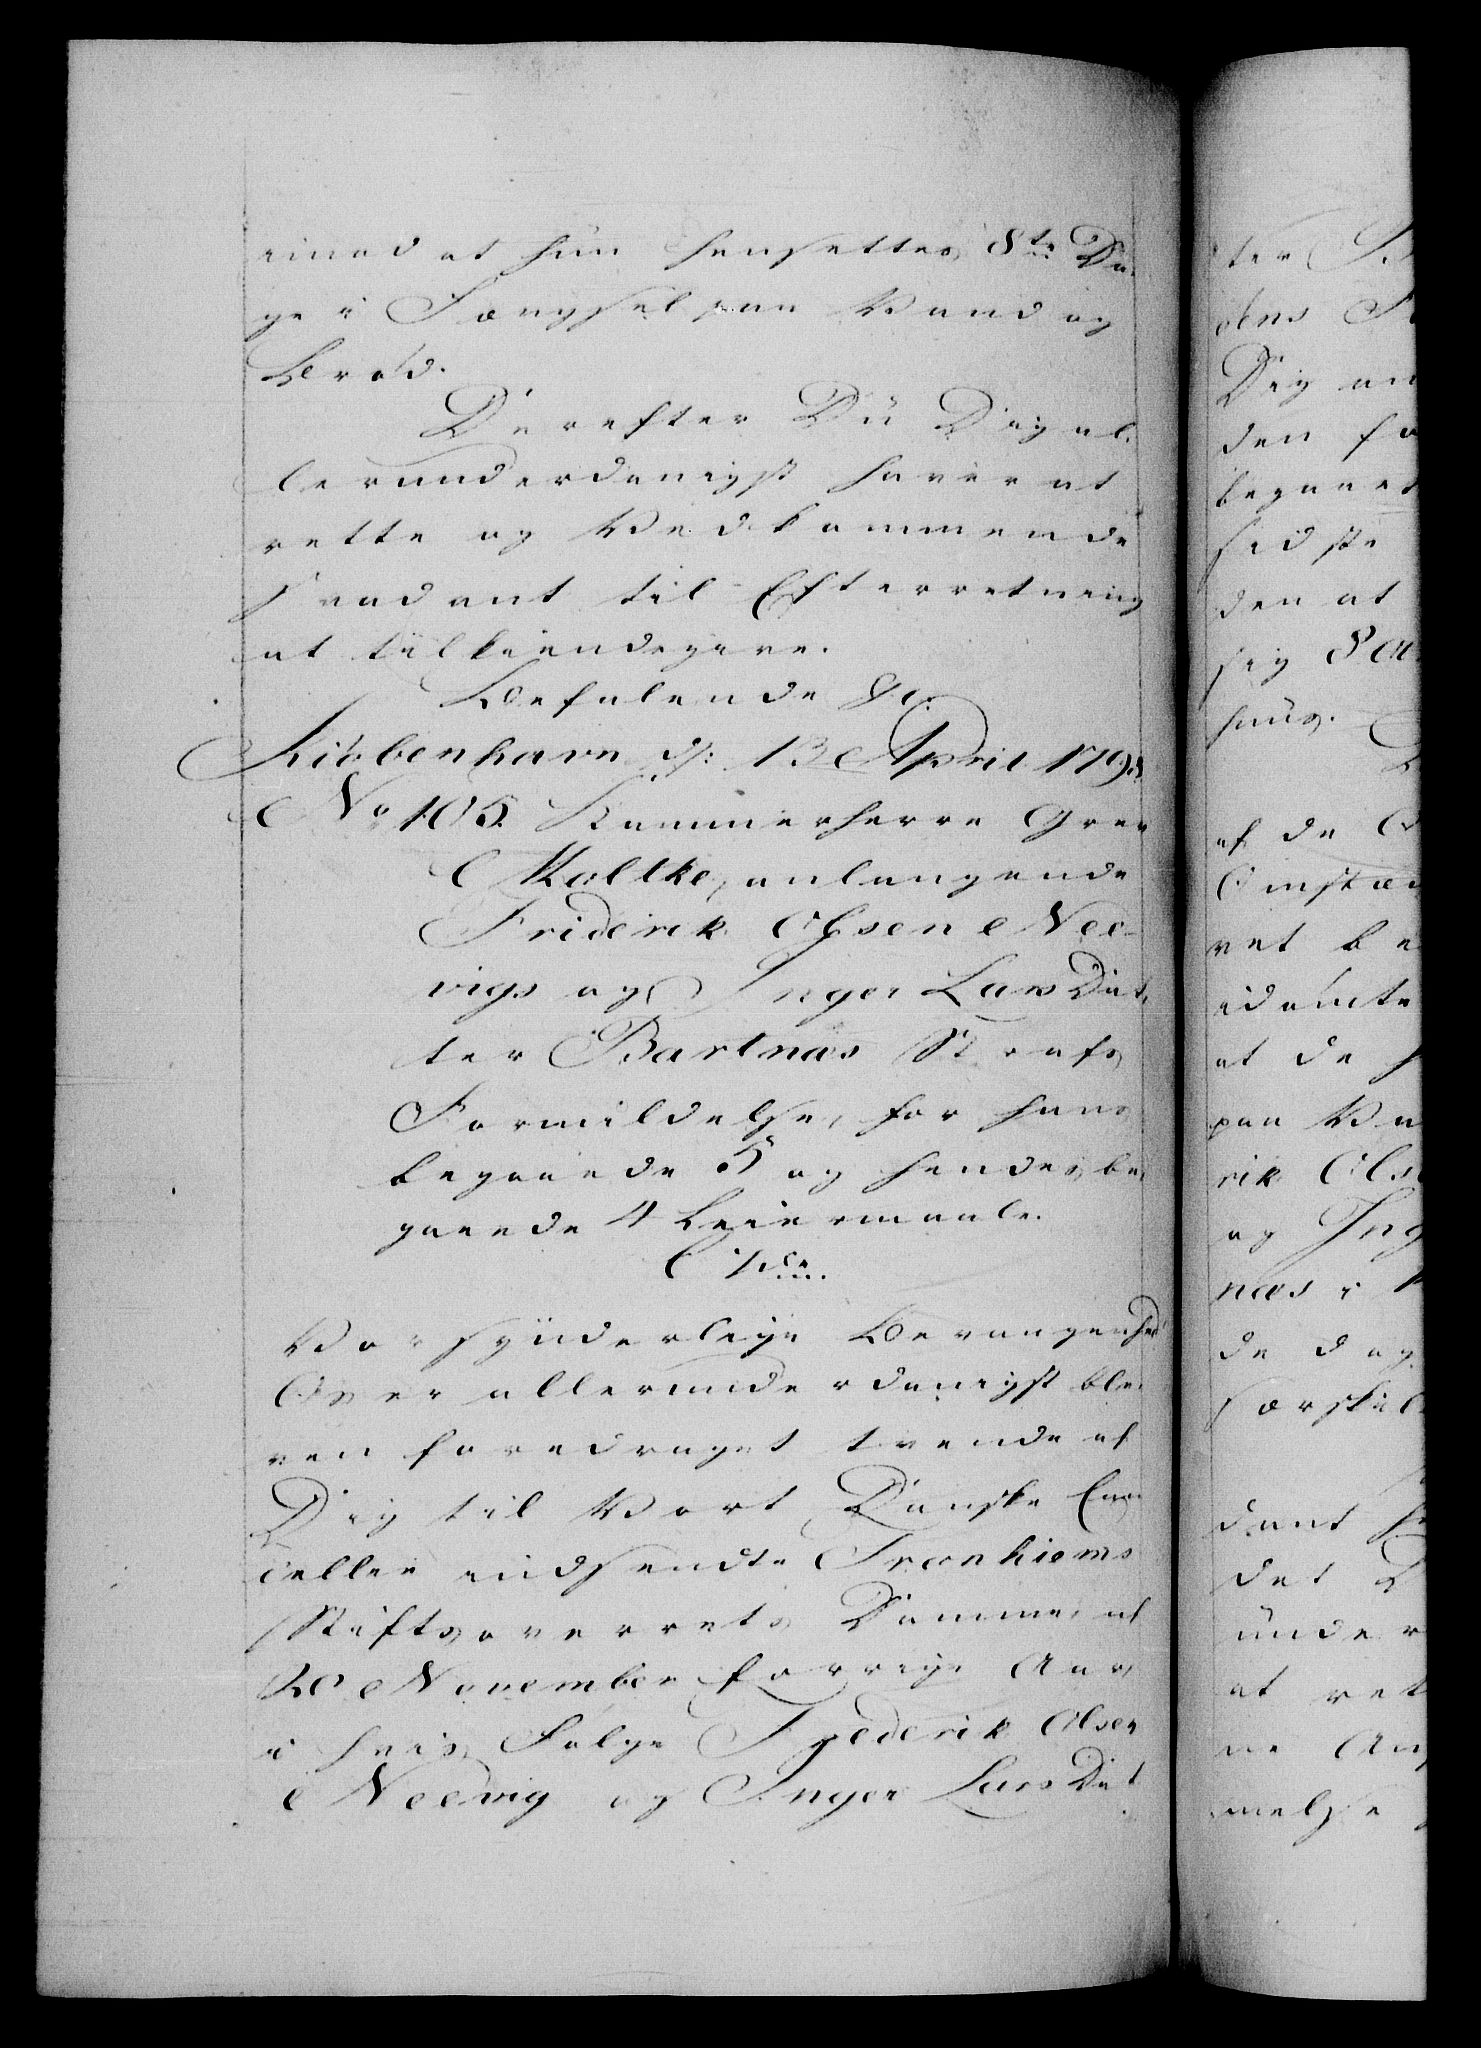 imod at hun hensettes 8te Da-
ge i Fængsel paa Vand og
Brød.
Derefter Du Dig al-
lerunderdanigst haver at
rette og Vedkommende
saadant til Efterretning
at tilkiendegive.
Befalende &c.
Kiøbenhavn d: 13 April 179
No 105. Kammerherre Grev
Moltke, anlangende
Friderik Olsen Nee-
vigs og Inger LarsDat-
ter Bartnæs Strafs
Formildelse, for hans
begaaede 5 og hendes be-
gaaede 4 Leiermaale.
C. 7de
Vor synderlige Bevaagenhed
Os er allerunderdanigst ble-
ven foredraget tvende af
Dig til Vort Danske Can-
cellie indsendte Tronhiems
Stiftsoverrets Domme, af
20 November forrige Aar,
i hvis Følge Frederik Olsen
Neevig og Inger LarsDat
ter
dens
Dig an
den fo
begaaet
sidste
den at
sig
huus.
af de
Omstæn
ret be
idømte
at de
paa Va
rik Ols
og Ing
næs i
de dag
særskil
dant
det
under
at ret
ne An
melse